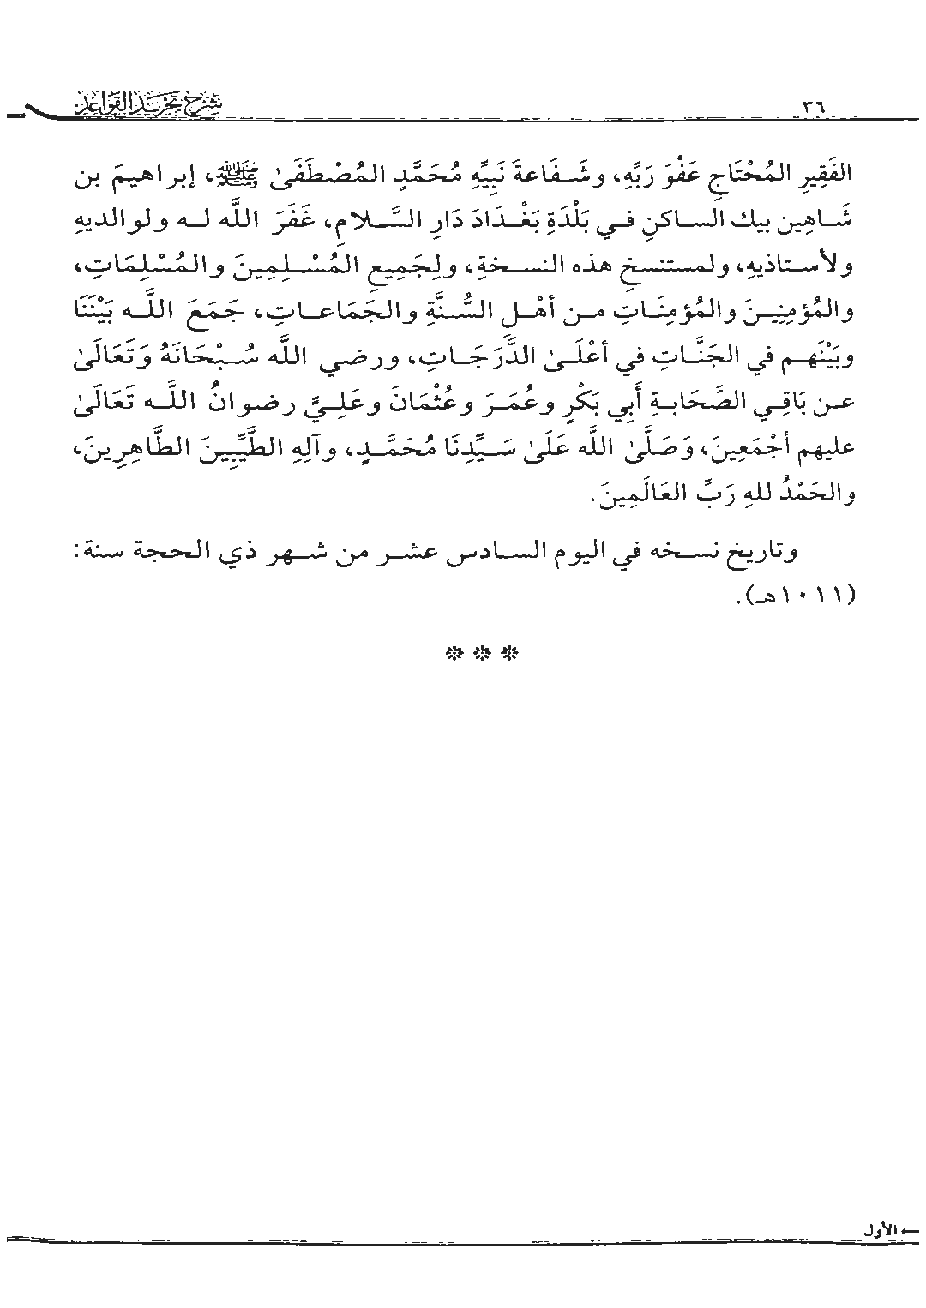 ٣٦
شرح تجريد القواعد
الفَقِيرِ المُحْتَاجِ عَفْوَ رَبِّهِ، وشَـفَاعةَ نَبِيِّهِ مُحَمَّدٍ المُصْطَفَىٰ ﷺ، إبراهيمَ بن
شَـاهين بيك السـاكنِ فـي بَلْدَةِ بَغْدَادَ دَارِ السَّـلامِ، غَفَرَ اللَّه لـه ولوالديهِ
ولأسـتاذيهِ، ولمستنسخِ هذه النسـخةِ، ولِجَمِيعِ المُسْـلِمِينَ والمُسْلِمَاتِ،
والمُؤمِنِيـنَ والمُؤمِنَـاتِ مـن أهْـلِ السُّـنَّةِ والجَمَاعـاتِ، جَمَعَ اللَّـه بَيْنَنَا
وبَيْنَهـم في الجَنَّـاتِ في أعْلَـىٰ الدَّرَجَـاتِ، ورضي اللَّه سُـبْحَانَهُ وَتَعَالَىٰ
عـن بَاقـي الصَّحَابـةِ أبي بَكْرٍ وعُمَـرَ وعُثْمَانَ وعَلِـيٍّ رضوانُ اللَّـه تَعَالَىٰ
عليهم أجْمَعِينَ، وَصَلَّىٰ اللَّه عَلَىٰ سَـيِّدِنَا مُحَمَّـدٍ، وآلِهِ الطَّيِّبِينَ الطَّاهِرِينَ،
والحَمْدُ للهِ رَبِّ العَالَمِينَ.
وتاريخ نسـخه في اليوم السـادس عشـر من شـهر ذي الحجة سنة:
(١٠١١هـ).
* * *
← الأول